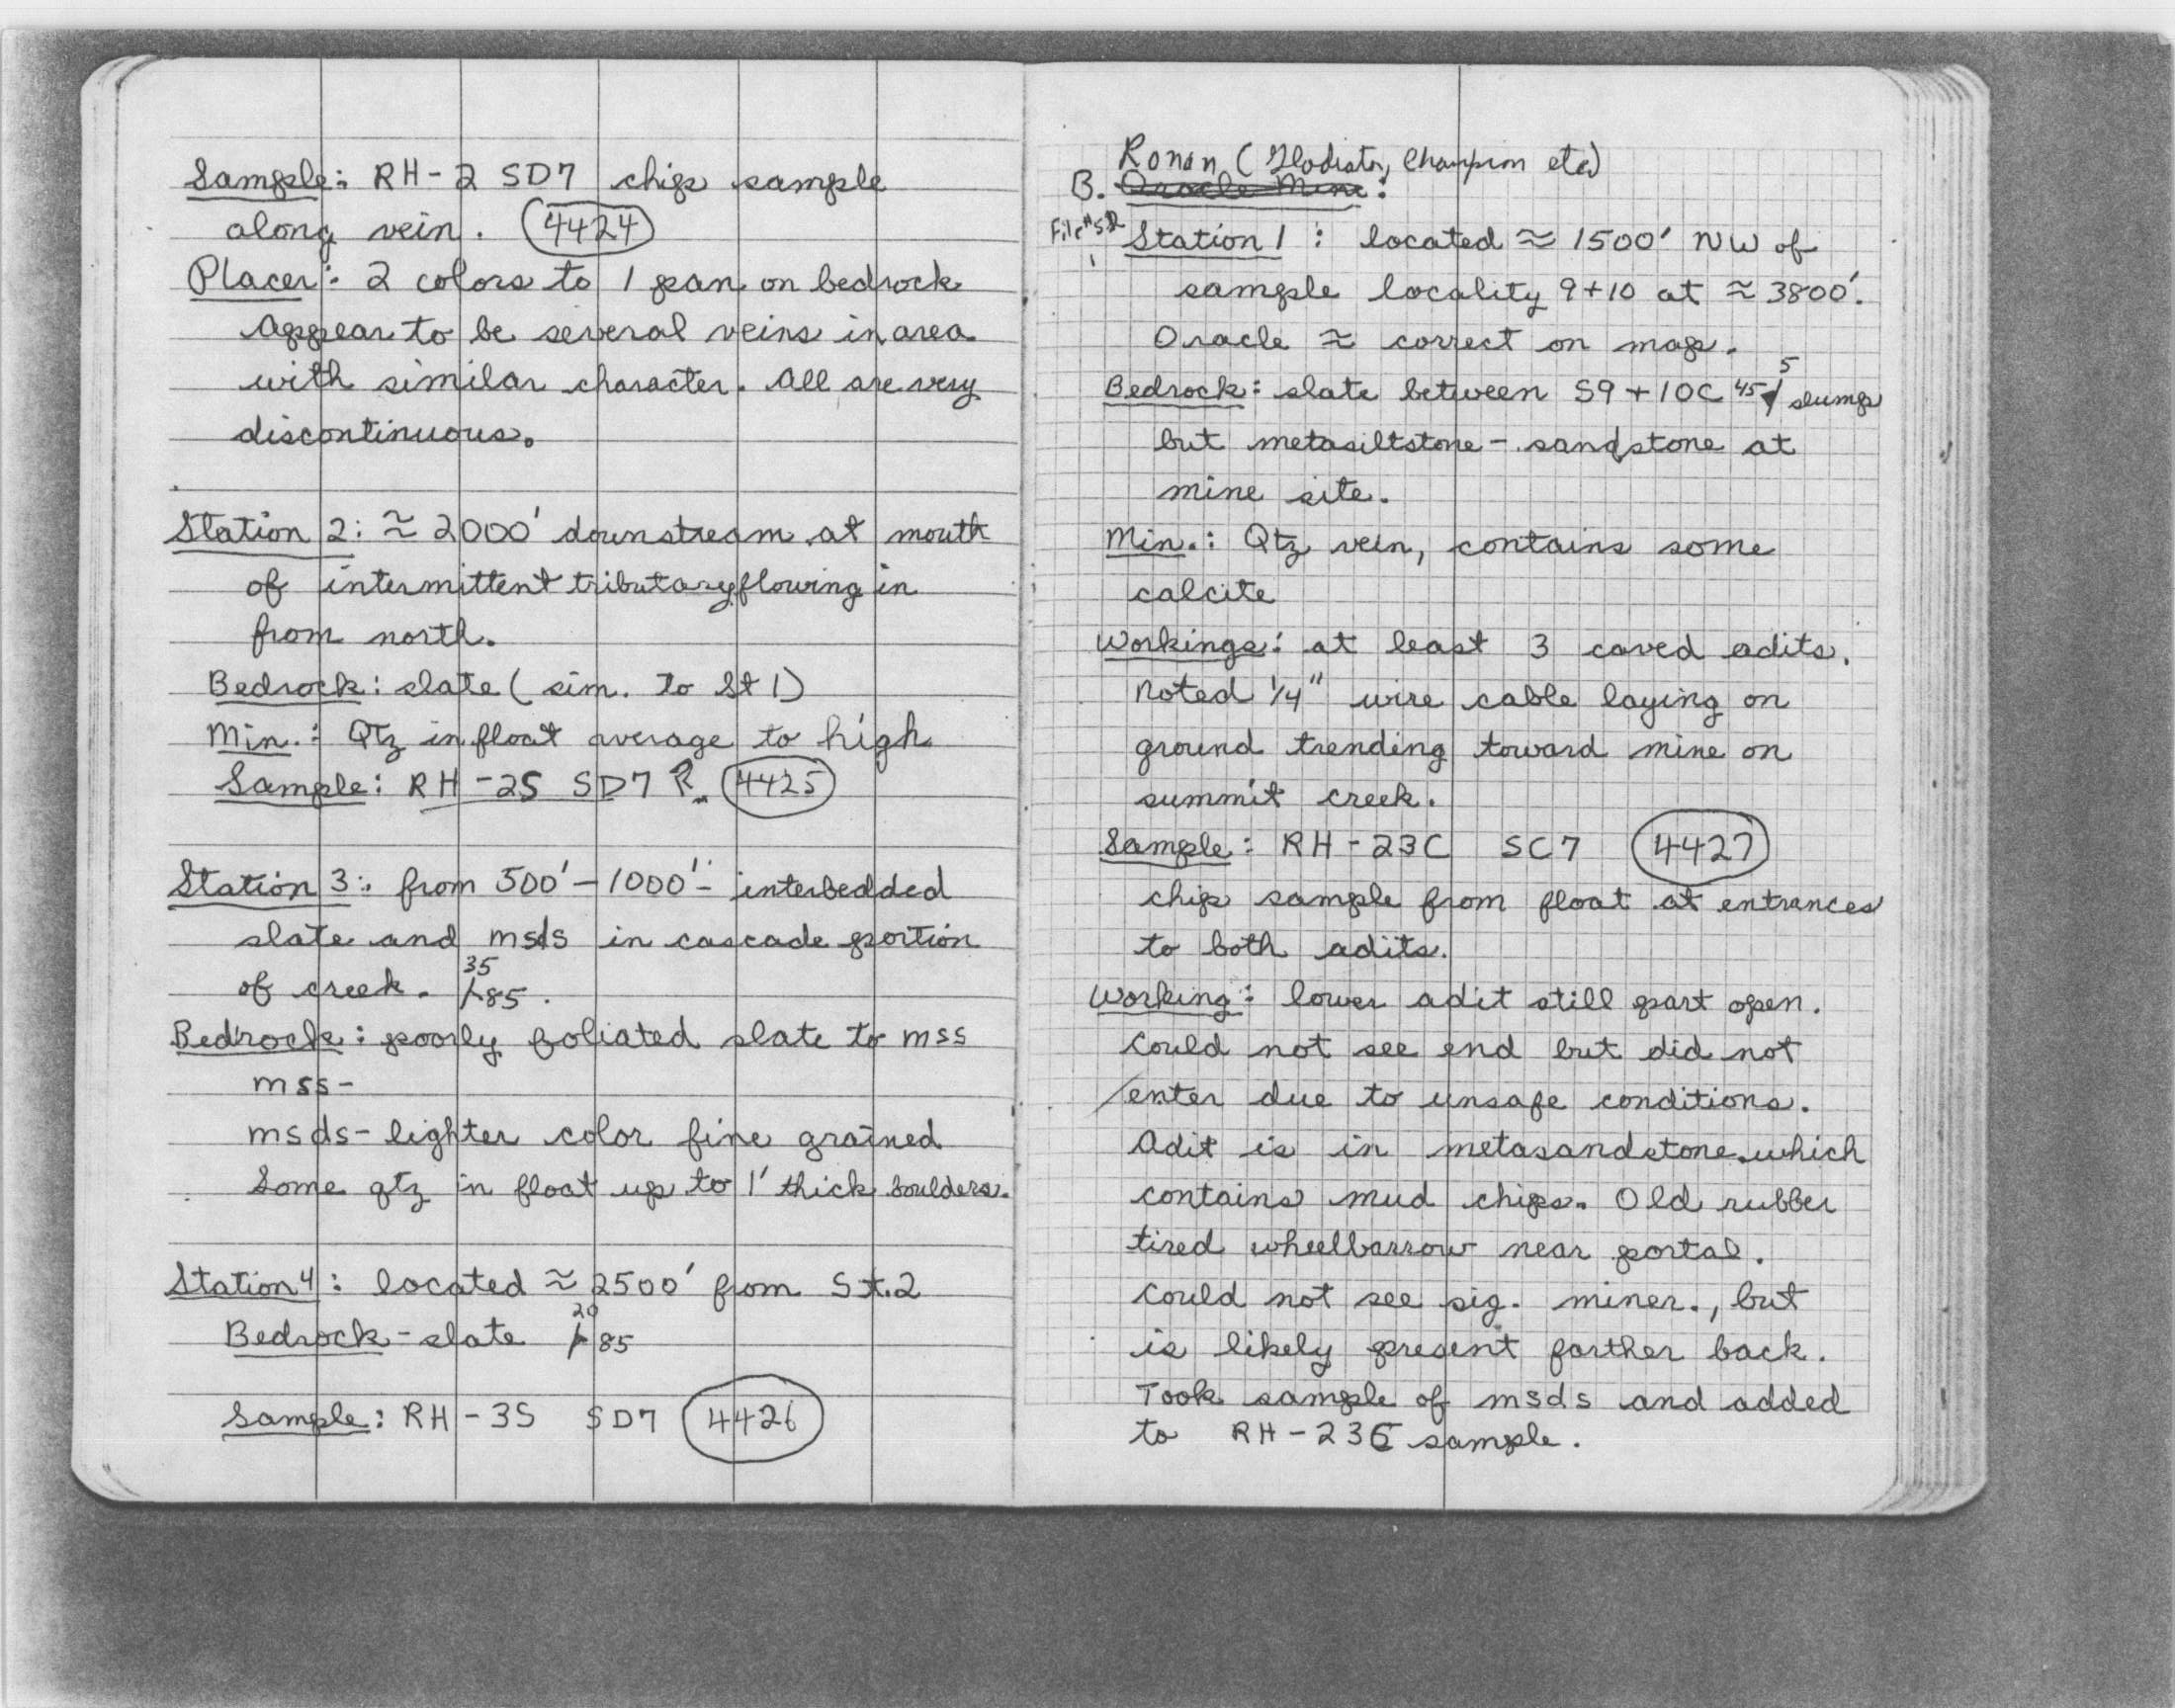 Sample: RH-2 SD7 chip sample
along vein. 4424
Placer: 2 colors to 1 pan on bedrock
Appear to be several veins in area
with similar character. All are very
discontinuous.
Station 2: ≈ 2000' downstream at mouth
of intermittent tributary flowing in
from north.
Bedrock: slate (sim. to St 1)
Min.: Qtz in float average to high
Sample: RH-2S SD7 4425
Station 3: from 500'-1000'- interbedded
slate and msds in cascade portion
of creek. 35 85.
Bedrock: poorly foliated slate to mss
mss-
msds- lighter color fine grained
Some qtz in float up to 1' thick boulders.
Station 4: located ≈ 2500' from St.2
Bedrock - slate 20 85
Sample: RH-3S SD7 4426
Ronan (Gladiator, Champion etc)
B. Oracle Mine:
File #
1
Station 1: located ≈ 1500' NW of
sample locality 9+10 at ≈ 3800'.
Oracle ≈ correct on map.
Bedrock: slate between S9 + 10C 45 5 slump
but metasiltstone - sandstone at
mine site.
Min.: Qtz vein, contains some
calcite
Workings: at least 3 caved adits.
Noted 1/4" wire cable laying on
ground trending toward mine on
summit creek.
Sample: RH-23C SC7 4427
chip sample from float at entrances
to both adits.
Working: lower adit still part open.
Could not see end but did not
enter due to unsafe conditions.
Adit is in metasandstone which
contains mud chips. Old rubber
tired wheelbarrow near portal.
Could not see sig. miner., but
is likely present farther back.
Took sample of msds and added
to RH-23C sample.